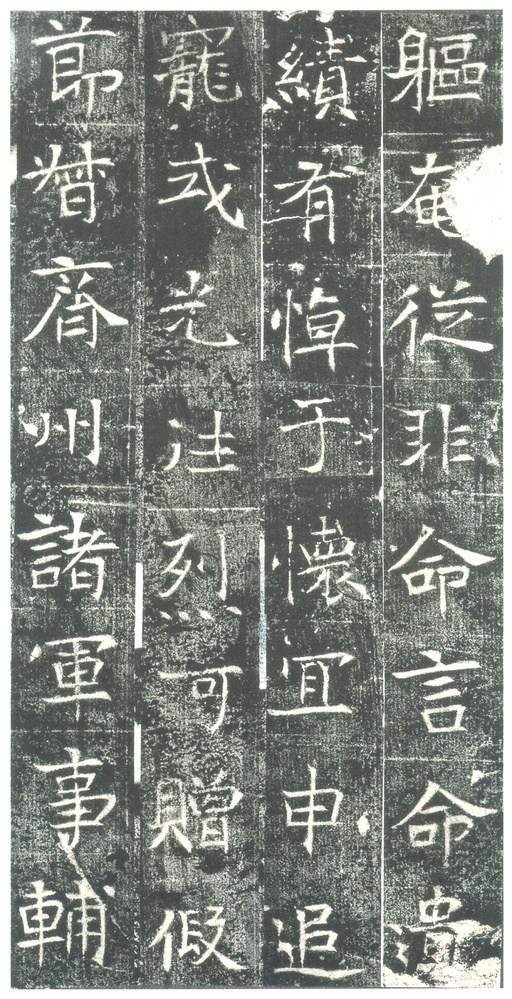 軀奄從非命言命
績有悼于懷宜申追
寵式光往烈可贈假
莭督齊州諸軍事輔